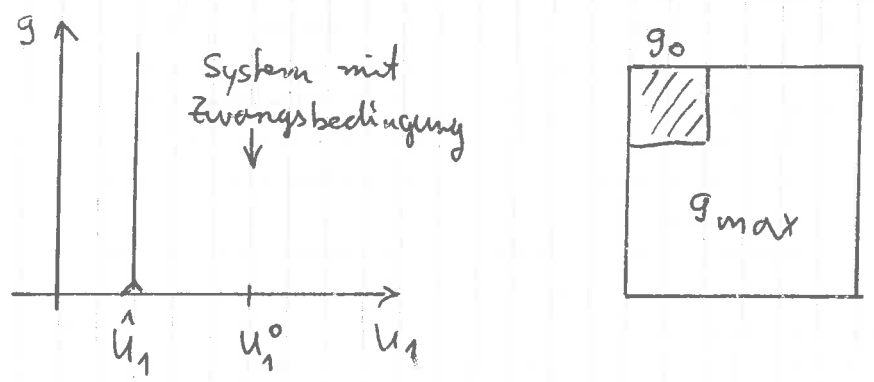 g
System mit
Zwangsbedingung
Û₁
U₁⁰
U₁
g₀
g max